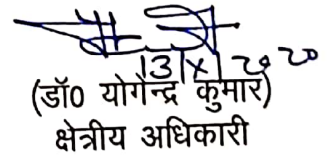 13/x/2020
(डॉ0 योगेन्द्र कुमार)
क्षेत्रीय अधिकारी